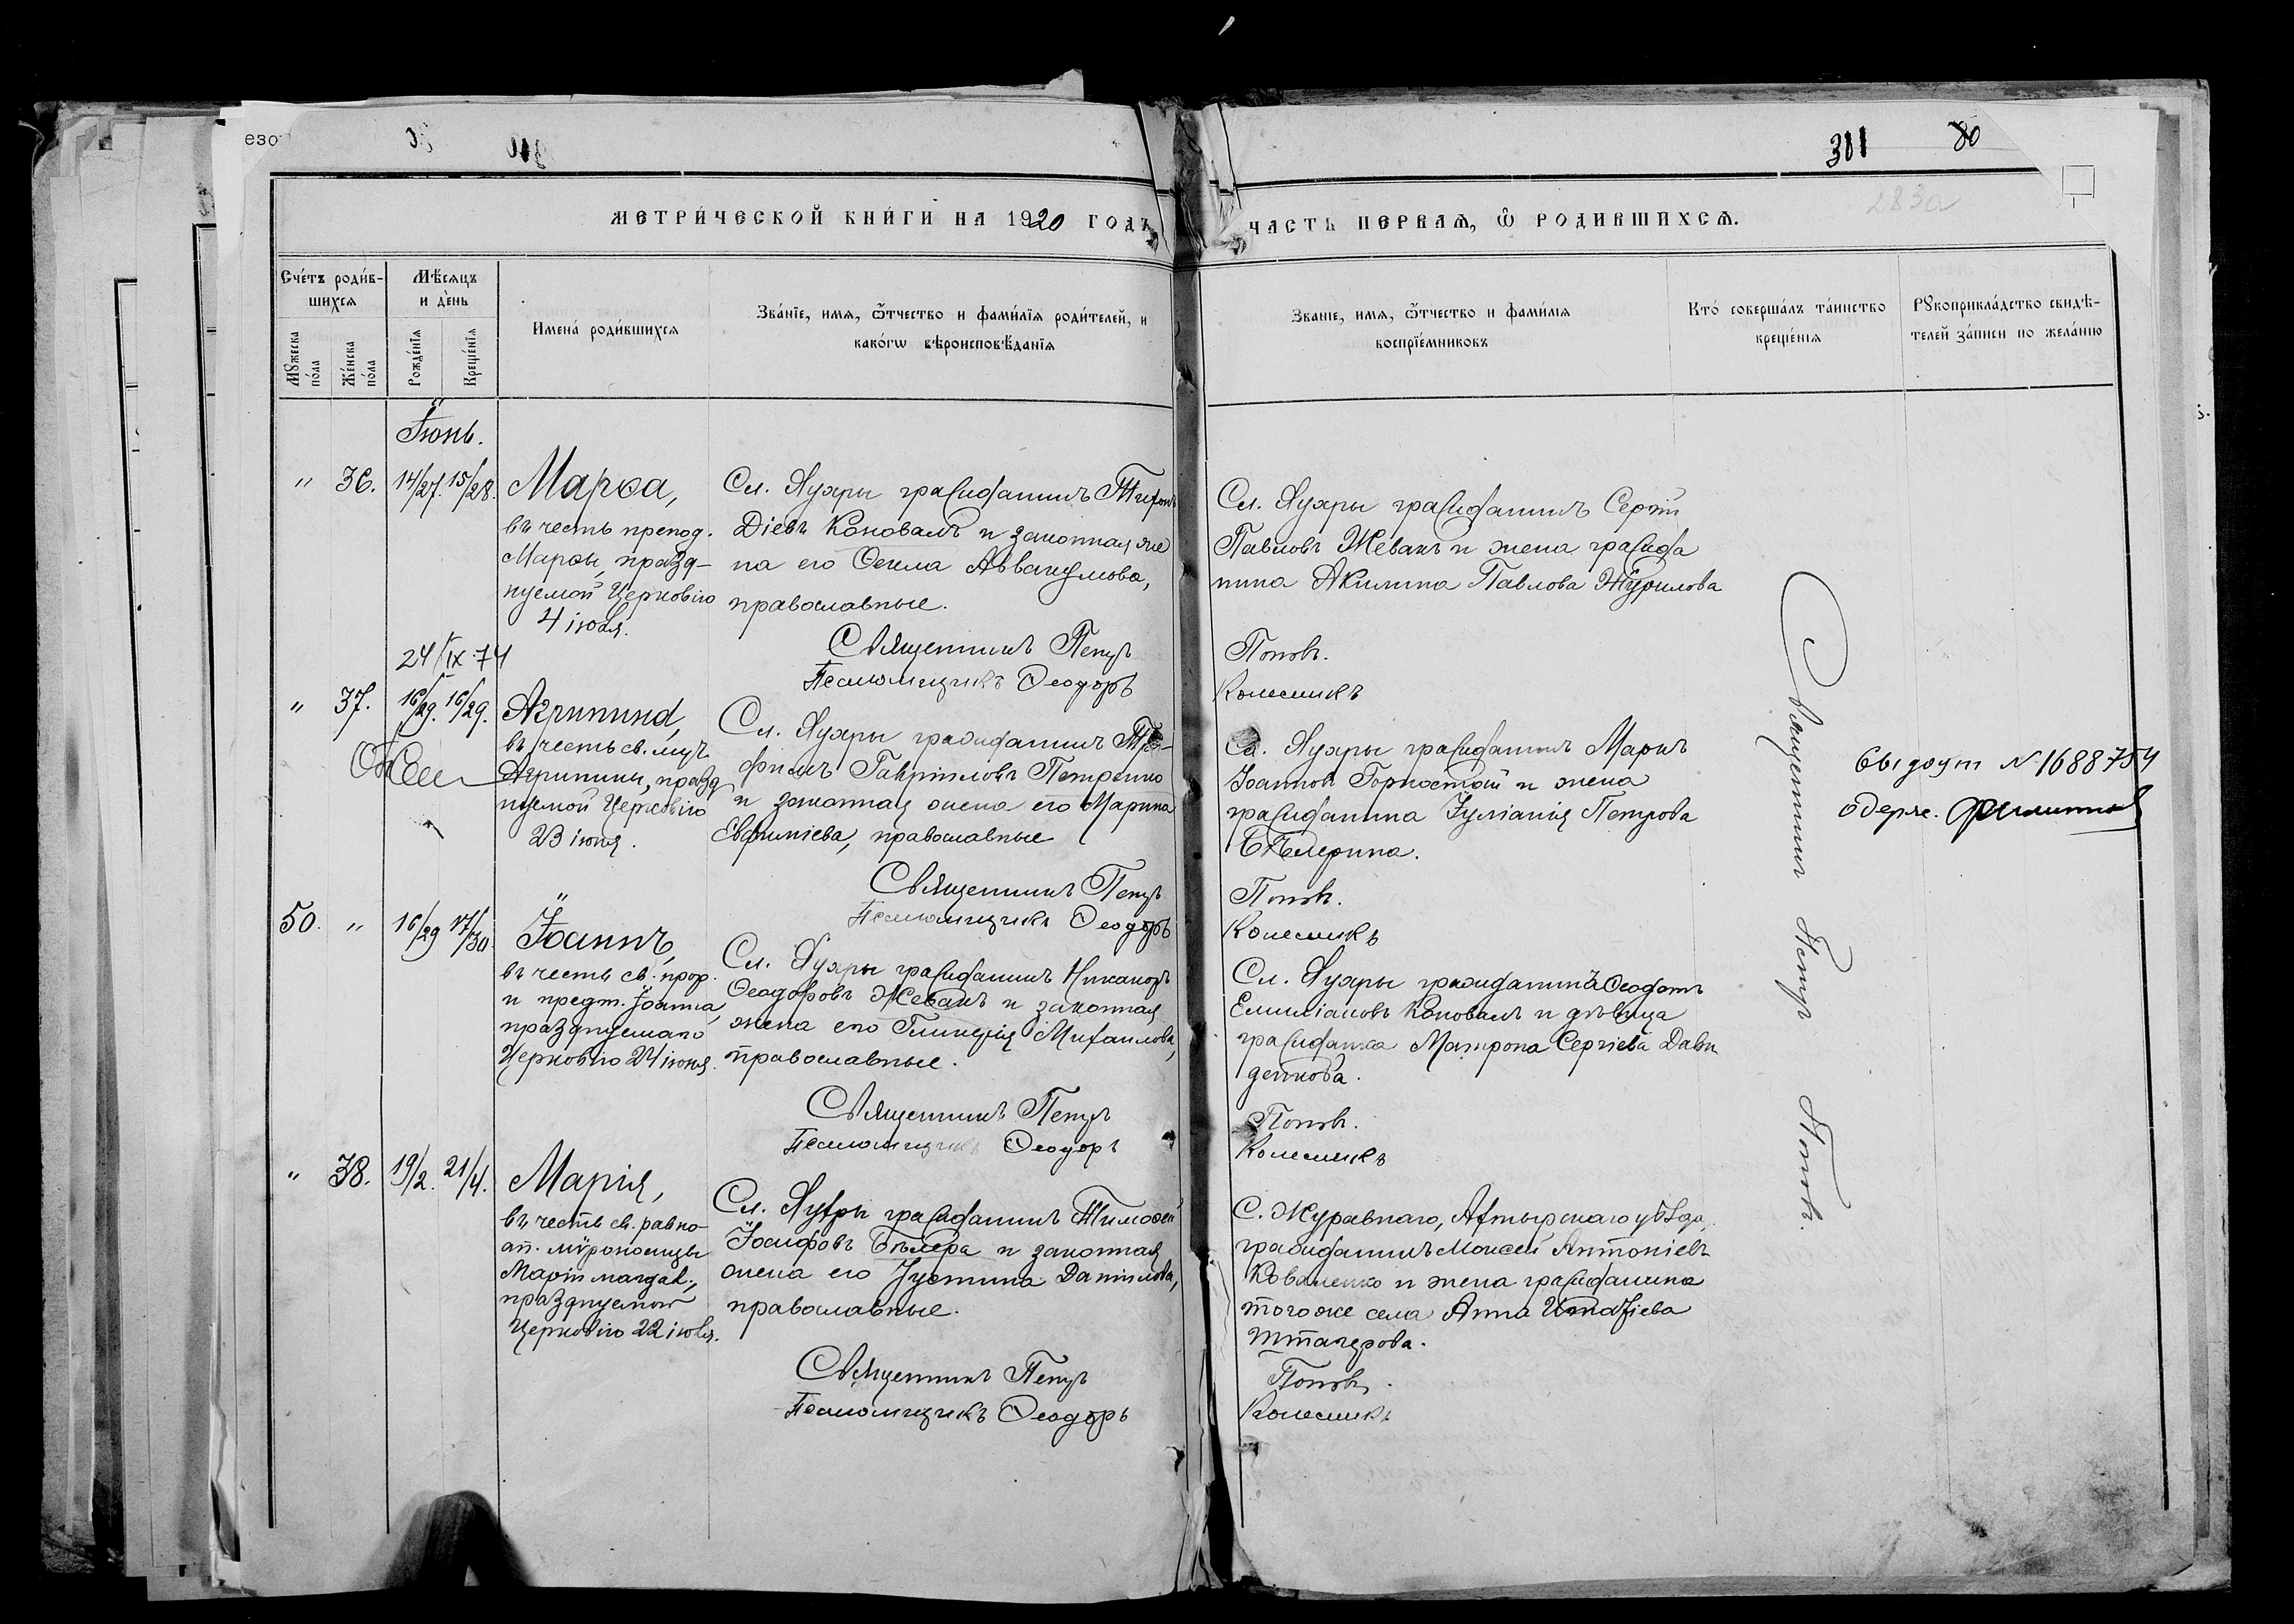 езо
311
80
283а
МЕТРИ́ЧЕСКОЙ КНИ́ГИ НА 1920 ГОДЪ
ЧАСТЬ ПЕРВАѦ, Ѽ РОДИВШИХСѦ.
Сче́тъ роди́в-
шихсѧ
Мꙋ́жеска по́ла
Же́нска по́ла
Мѣ́сѧцъ
и де́нь
Рожде́нїѧ
Креще́нїѧ
Имена̀ роди́вшихсѧ
Зва́нїе, имѧ, ѻ҆́тчество и фами́лїѧ роди́телей, и
како́гѡ вѣроисповѣ́данїѧ
Званїе, имѧ, ѻ҆́тчество и фами́лїѧ
воспрїе́мниковъ
Кто́ соверша́лъ та́инство
креще́нїѧ
Рꙋкоприкла́дство свидѣ́-
телей за́писи по жела́нию
Іюнь.
" 36. 14/27. 15/28.
Марѳа,
въ честь препод.
Марѳы, празд-
нуемой Церковію
4 іюля.
Сл. Яухры гражданинъ Тихонъ
Діевъ Коновалъ и законная же
на его Ѳекла Аввакумова,
православные.
Священникъ Петръ
Псаломщикъ Ѳеодоръ
Сл. Яухры гражданинъ Сергій
Павловъ Жевакъ и жена гражда
нина Акилина Павлова Журилова
Поповъ.
Колесникъ
24/IX 74
" 37. 16/29. 16/29.
Агрипина,
въ честь св. муч.
Агрипины, празд
нуемой Церковію
23 іюня.
Сл. Яухры гражданинъ Тро-
фимъ Гавріиловъ Петренко
и законная жена его Марина
Евфиміева, православные
Священникъ Петръ
Псаломщикъ Ѳеодоръ
Сл. Яухры гражданинъ Маркъ
Іоанновъ Горностай и жена
гражданина Іуліанія Петрова
Поповъ.
Колесникъ
Свидоцт N 1688754
одерж.
50. " 16/29 17/30
Іоаннъ,
въ честь св. прор.
и предт. Іоанна,
празднуемаго
Церковію 24 іюня.
Сл. Яухры гражданинъ Никаноръ
Ѳеодоровъ Жевакъ и законная
жена его Гликерія Михаилова,
православные.
Священникъ Петръ
Псаломщикъ Ѳеодоръ
Сл. Яухры гражданинъ Ѳеодотъ
Емиліановъ Коновалъ и дѣвица
гражданка Матрона Сергіева Давы
денкова.
Поповъ.
Колесникъ
" 38. 19/2. 21/4.
Марія,
въ честь св. равно-
ап. мѵроносицы
Маріи магдал.,
празднуемой
Церковію 22 іюля.
Сл. Яухры гражданинъ Тимоѳей
Іосифовъ Бѣлера и законная
жена его Іустина Даніилова,
православные.
Священникъ Петръ
Псаломщикъ Ѳеодоръ
С. Журавнаго, Ахтырскаго уѣзда,
гражданинъ Моисей Антоніевъ
Коваленко и жена гражданина
того же села Анна Игнатіева
Поповъ.
Колесникъ
Священникъ Петръ Поповъ.